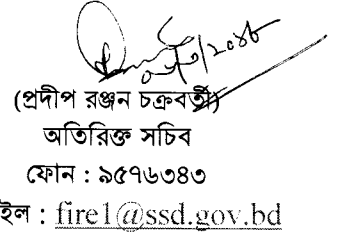 (প্রদীপ রঞ্জন চক্রবর্তী)
অতিরিক্ত সচিব
ফোন : ৯৫৭৬৩৪৩
ইল : fire1@ssd.gov.bd